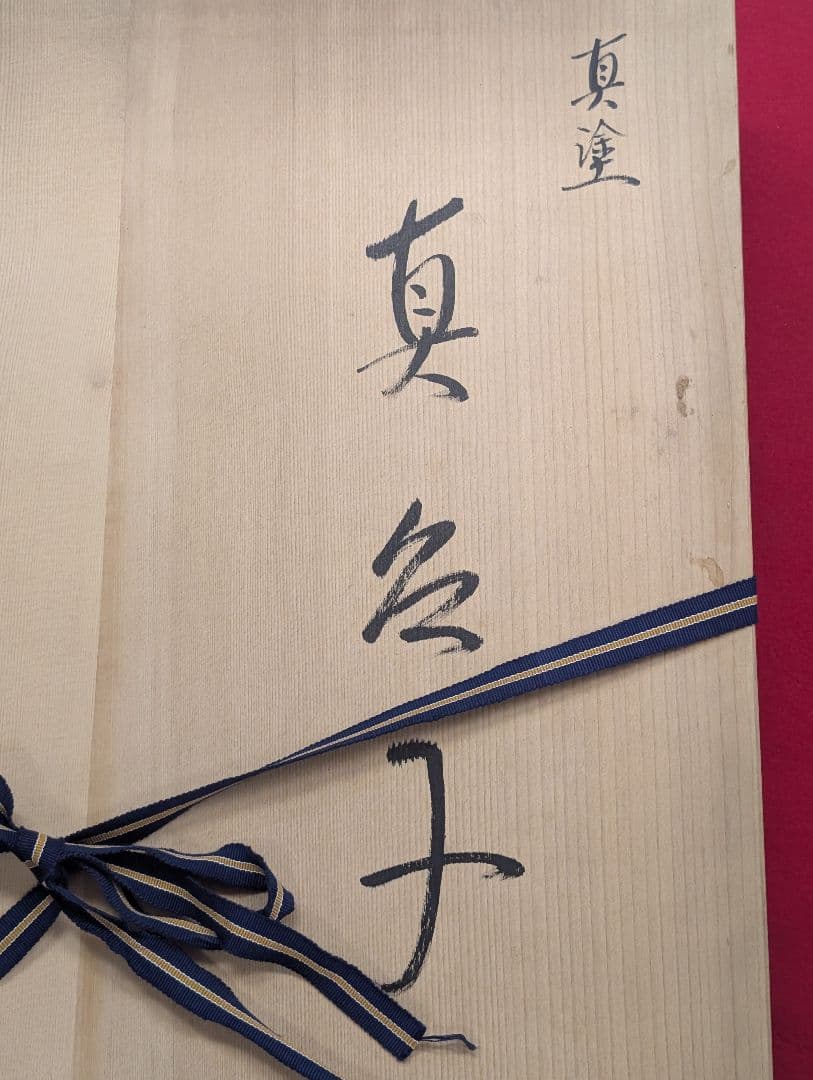 真塗
真台子